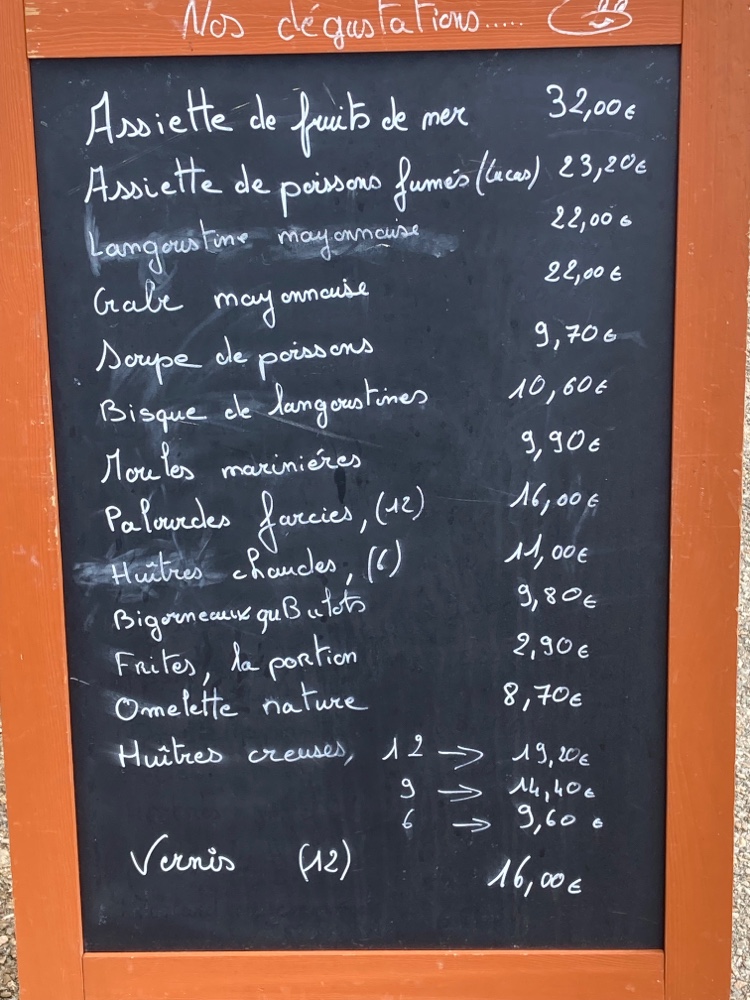 Nos dégustations.....
Assiette de fruits de mer 32,00€
Assiette de poissons fumés (Lucas) 23,20€
Langoustine mayonnaise 22,00€
Crabe mayonnaise 22,00€
Soupe de poissons 9,70€
Bisque de langoustines 10,60€
Moules mariniéres 9,90€
Palourdes farcies, (12) 16,00€
Huîtres chaudes, (6) 11,00€
Bigorneaux ou Bulots 9,80€
Frites, la portion 2,90€
Omelette nature 8,70€
Huîtres creuses, 12 → 19,20€
9 → 14,40€
6 → 9,60€
Vernis (12) 16,00€